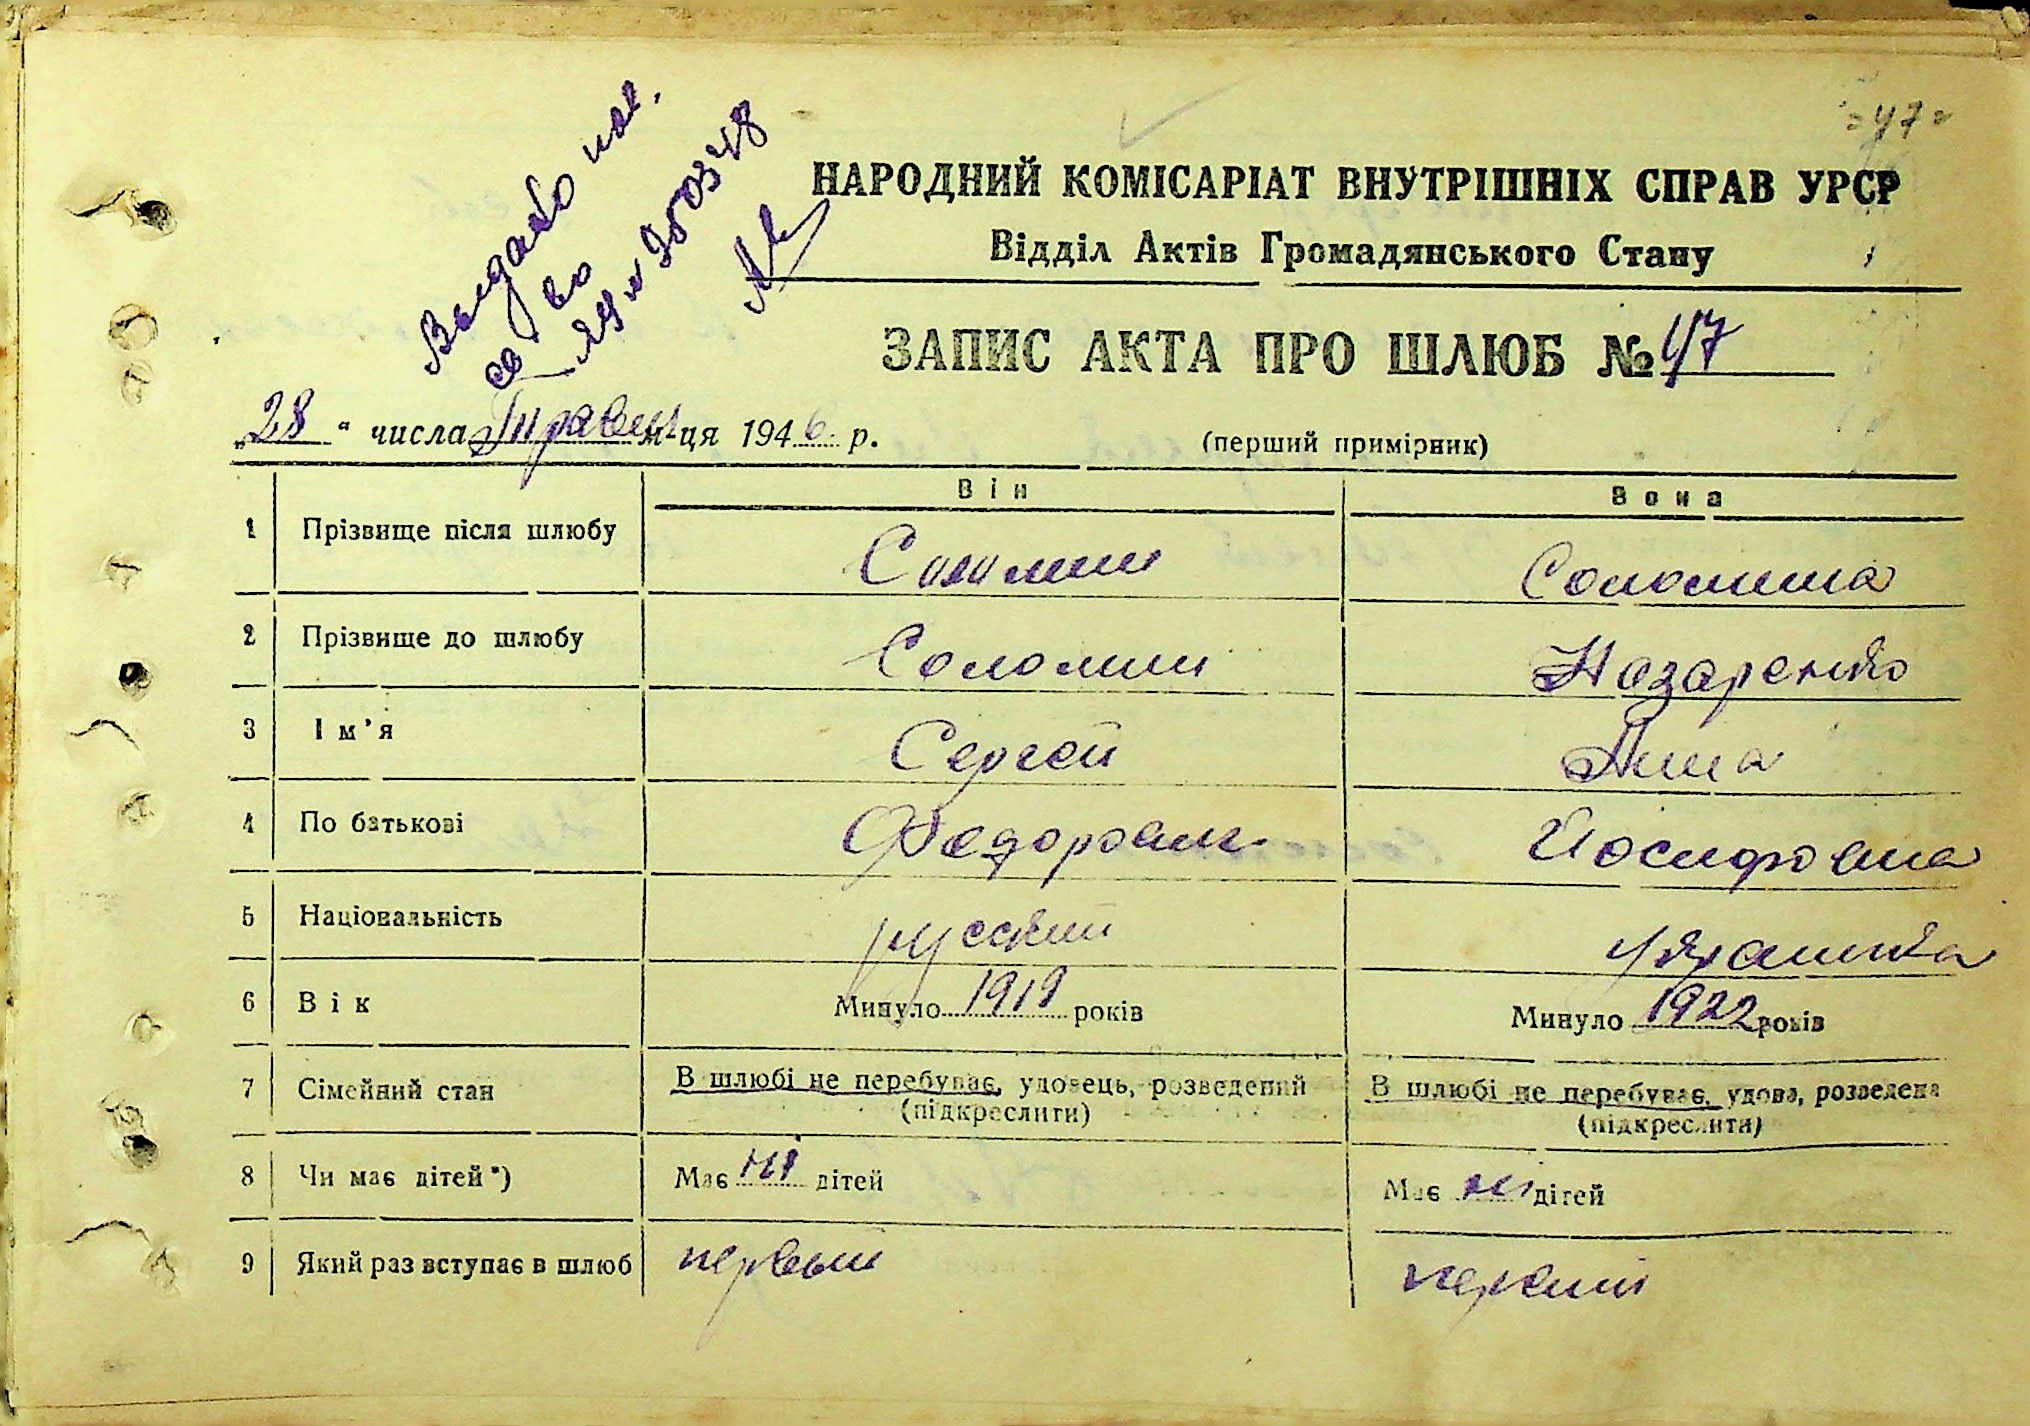 = 47 =
Выдано пов.
св во
ЯЧ № 300348
НАРОДНИЙ КОМІСАРІАТ ВНУТРІШНІХ СПРАВ УРСР
Відділ Актів Громадянського Стану
ЗАПИС АКТА ПРО ШЛЮБ № 47
„28“ числа Травня м-ця 1946 р.
(перший примірник)
Він Вона
1 Прізвище після шлюбу Соломин Соломина
2 Прізвище до шлюбу Соломин Назаренко
3 Ім'я Сергей Анна
4 По батькові Федорович Йосифовна
5 Національність русский украинка
6 Вік Минуло 1919 років Минуло 1922 років
7 Сімейний стан В шлюбі не перебуває, удовець, розведений (підкреслити) В шлюбі не перебуває, удова, розведена (підкреслити)
8 Чи має дітей*) Має ні дітей Має ні дітей
9 Який раз вступає в шлюб первый первий